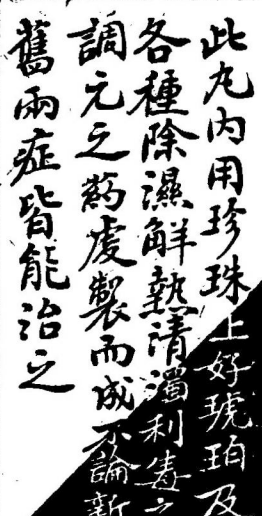 此丸内用珍珠上好琥珀及
各種除濕觧熱清濁利毒之
調元之葯虔製而成不論新
舊兩症皆能治之